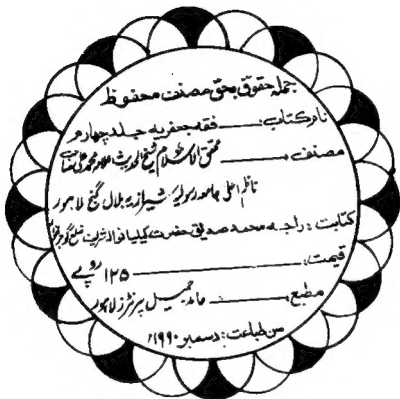 جملہ حقوق بحق مصنف محفوظ
نام کتاب: ــــــ فقہ جعفریہ جلد چہارم
مصنف: ــــــ محقق الاسلام شیخ الحدیث علامہ محمد علی صاحب
ناظم اعلیٰ جامعہ رسولیہ شیرازیہ بلال گنج لاہور
کتابت: راجہ محمد صدیق حضرت کیلیانوالہ شریف ضلع گوجرانوالہ
قیمت: ــــــ ۱۲۵ روپے
مطبع: ــــــ حامد جمیل پرنٹرز لاہور
سن طباعت: دسمبر ۱۹۹۰ء